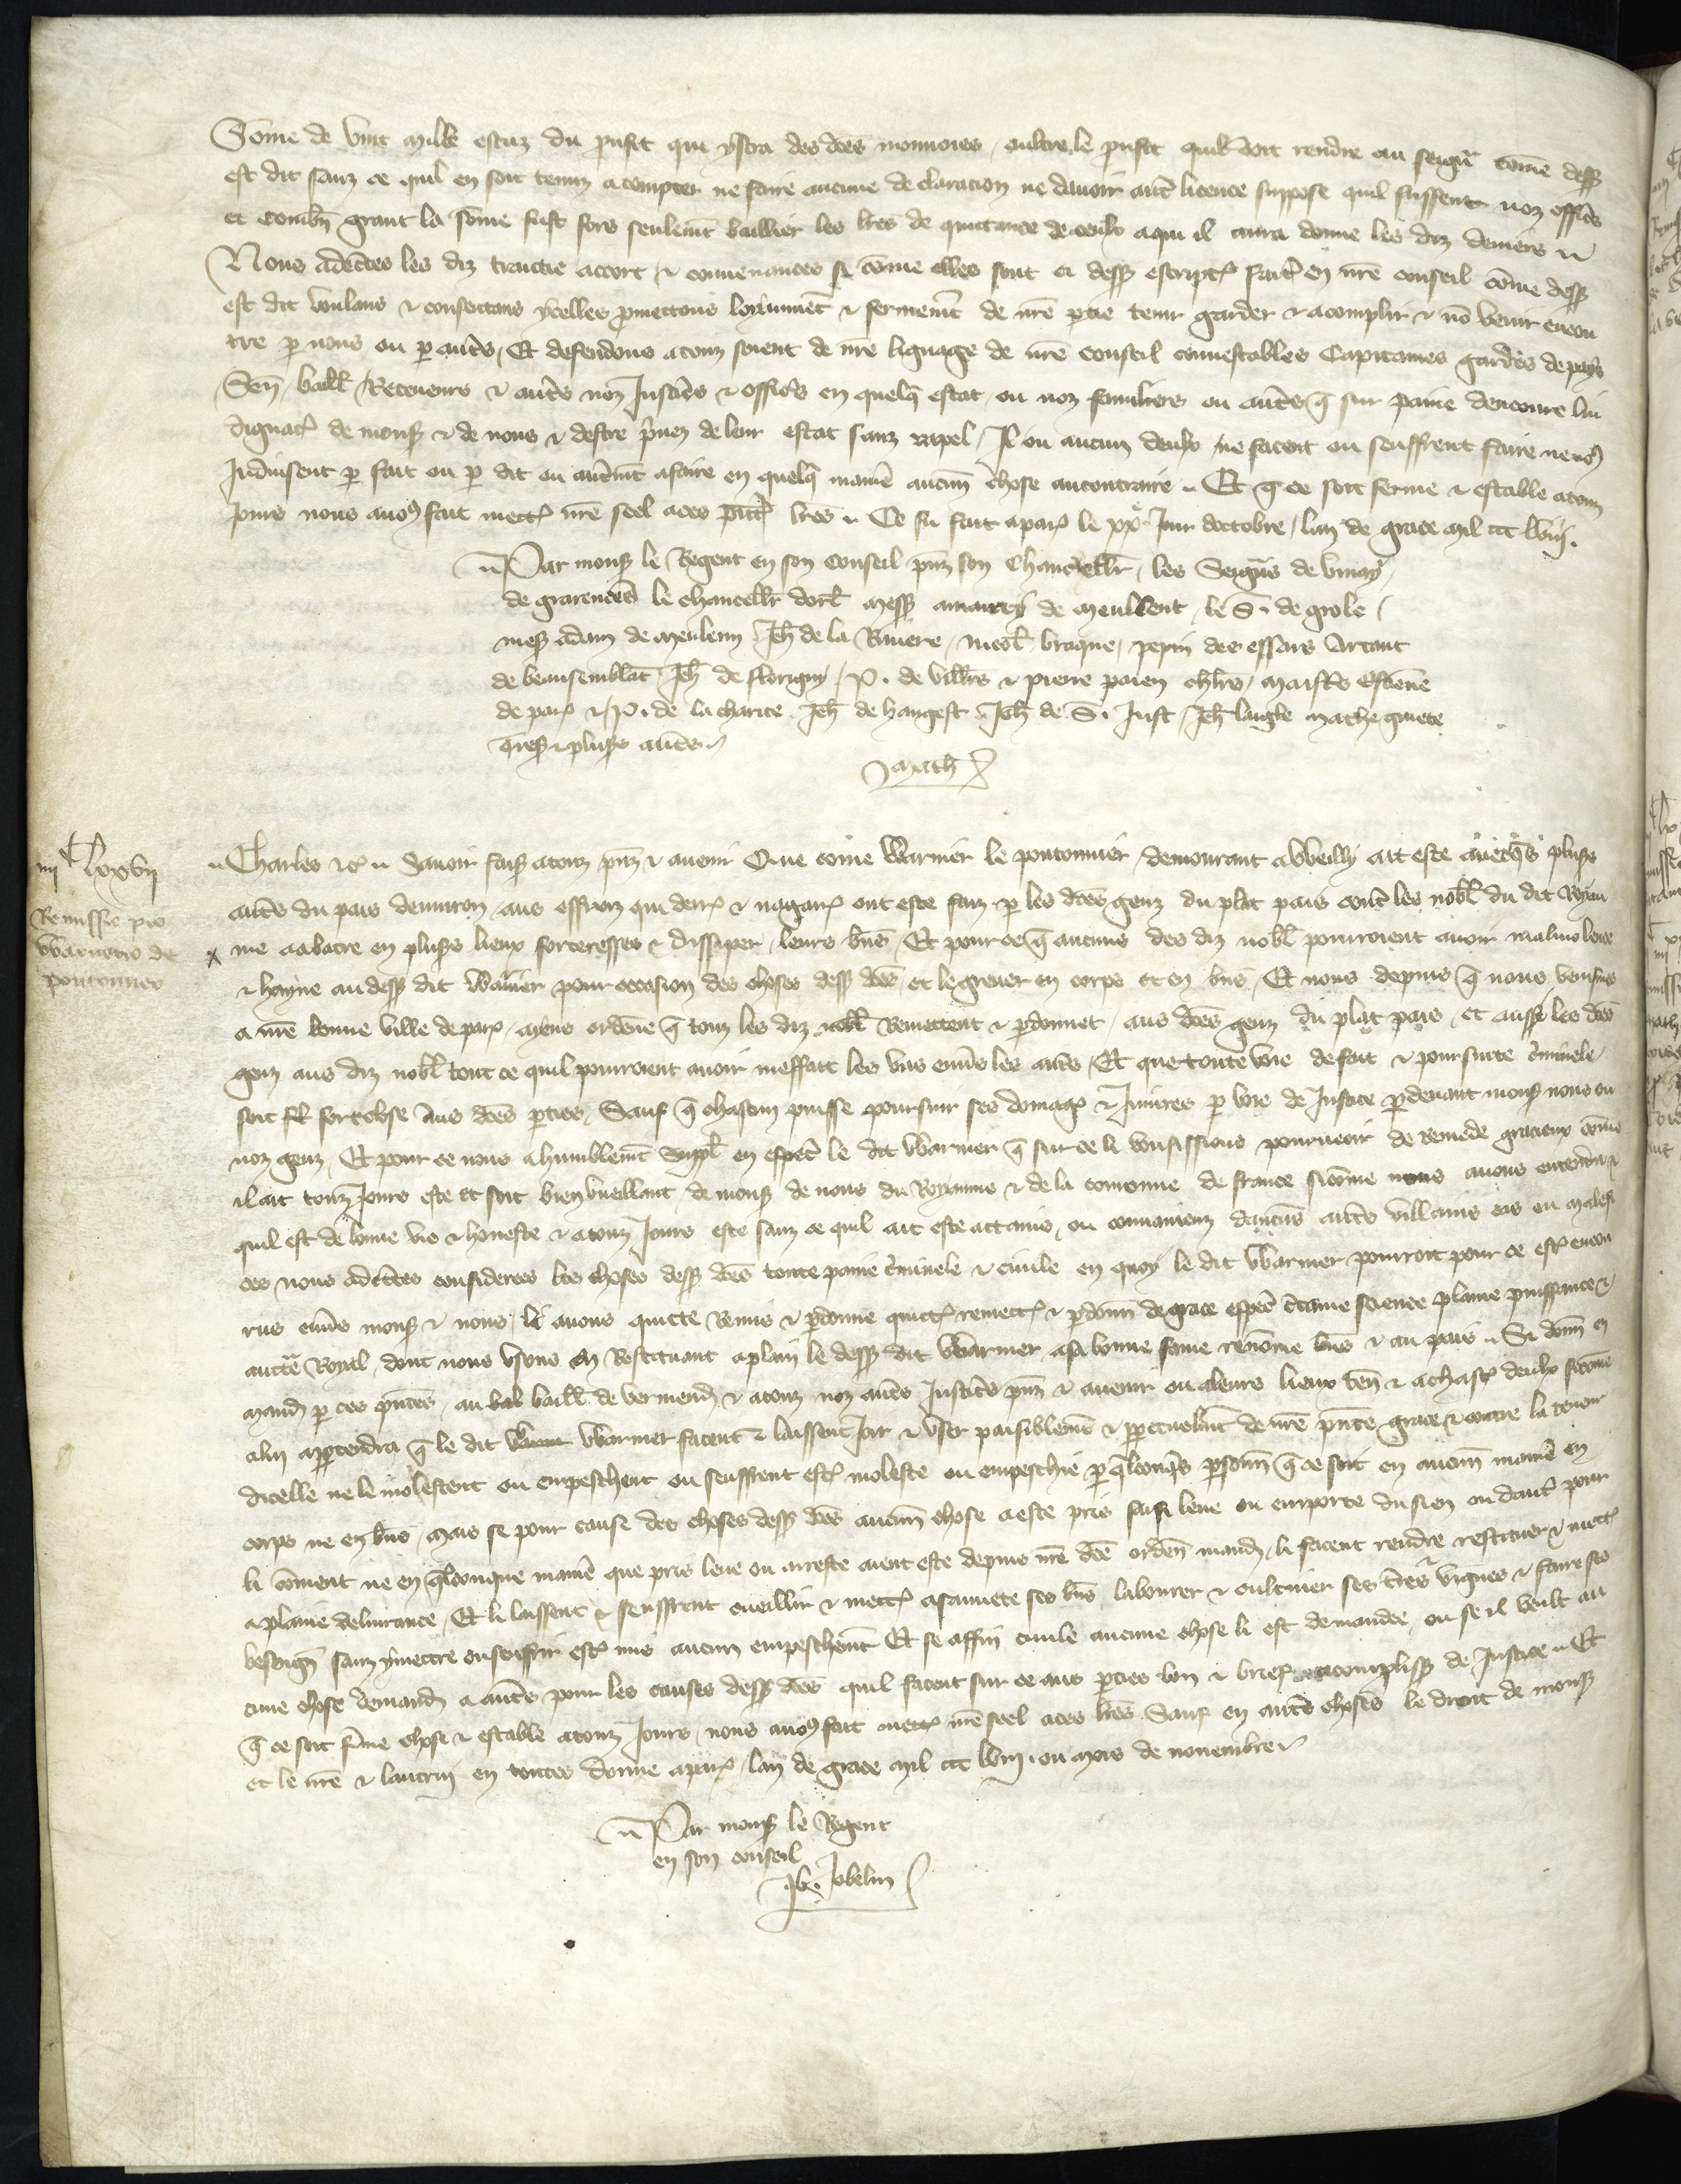 Some de vint mille escuz du proufit qui ystra des dces monnoies oultre le proufit quil doit rendre au seigr come dess
est dit sanz ce quil en soit tenuz a compter ne faire aucune declaracion ne davoir autre licence suppose quil fussent noz officrs
et combn grant la some fust fors seulemt baillier les lres de quittance de ceulx a qui il aura donne les diz deniers
Nous adcertes les diz traictie accort & convenances si come elles sont ci dess escriptes faites en nre conseil come dess
est dit voulans & consentans ycelles promettons loyaumet & fermemt de nre partie tenir garder & acomplir & no venir encon
tre p nous ou p autrs Et defendons a touz soient de nre lignage de nre conseil connestables Capitaines gardes de pays
Sen baill Receveurs & autrs noz Justicrs & officrs en quelq estat ou noz familiers ou autres q sur paine dencourre lin
dignacon de mons & de nous & destre privez de leur estat sanz rapel Il ou aucun deulx ne facent ou seuffrent faire ne no9
induisent p fait ou p dit ou autremt a faire en quelq manie aucun chose au contraire Et q ce soit ferme & estable a touz
jours nous avo9 fait mectre nre seel a ces pntes lres Ce fu fait a paris le xxe jour doctobre lan de grace mil ccc lviij.
Par mons le Regent en son conseil pns son Chancellr les Seigrs de vinay
de grarences le chancellr dorl mess amaury de meullent le S. de grole
mess adam de meuleun Jeh de la Riviere nicol braque pepin des essars Artaut
de beausemblat Jeh de florigny P. de villrs & pierre paien chlrs maistrs estiene
de paris & P. de la charite Jeh de hangest Jeh de S. Just Jeh laigle mathe guete
tres & plusrs autrs
Math
iiijc lxxvij
Remissio pro
Warnero de
pontonner
Charles &c Savoir fais a touz pns & avenir Que come Warnier le pontonnier demourant a Weilly ait este avecqs plusrs
autrs du pais denviron aus effroiz qui derr & nagair ont este faiz p les dces genz du plat pais contre les nobl du dit Royau
me a abatre en plusrs lieux forteresses & dissiper leurs bns Et pour ce q aucuns des diz nobl pourroient avoir malivolence
& hayne au dess dit Warnier pour occasion des choses dess dces et le grever en corps et en bns Et nous depuis q nous venismes
a nre bonne ville de paris ayens ordene q touz les diz nobl Remettent & pdonnet aus dces genz du plat pais et aussi les dces
genz aus diz nobl tout ce quil pourroient avoir meffait les uns envrs les autrs Et que toute voie de fait & poursuite criminele
soit forclose aus dces pties Sauf q chascun puisse poursuir ses domages & injures p voie de Justice p devant mons nous ou
noz genz Et pour ce nous a humblemt suppl en especl le dit Warnier q sur ce li vousissions pourveoir de remede gracieux come
il ait touz jours este et soit bien vueillant de mons de nous du Royaume & de la couronne de france si come nous avons entendu &
quil est de bonne vie & honeste & a touz jours este sanz ce quil ait este attains ou convaincuz daucuns autrs villains cas ou malefi
ces nous adcertes considerees les choses dess dces toute paine criminele & civile en quoy le dit Warnier pourroit pour ce estre encou
rus envrs mons & nous li avons quicte Remis & pdonne quictons remectons & pdonn de grace especl certaine science plaine puissance &
auctte Royal dont nous usons En Restituant a plain le dess dit Warnier a sa bonne fame renomee bns & au pais Si donn en
mand p ces pntes au baill de vermend & a touz noz autrs Justicrs pns & avenir ou a leurs lieux ten & a chascun deulx si come
a luy appartendra q le dit Warnier facent & laissent joir & user paisiblemt & ppetuelmt de nre pnte grace & contre la teneur
dicelle ne le molestent ou empeschent ou seuffrent estre moleste ou empeschie p qlconqs psonn q ce soit en aucun manie en
corps ne en bns mais se pour cause des choses dess dces aucun chose a este pris saisi leve ou emporte du sien ou dautre pour
li coment ne en qlconque manie que pris leve ou arreste aient este depuis nre dce orden mand li facent rendre restituer & mectre
a plaine delivrance Et li laissent & seuffrent cueillir & mectre a sauvete ses bns labourer & coultiver ses terres vignes & faire ses
besoign sanz y mettre ou souffrir estre mis aucun empeschemt Et se affin civile aucune chose li est demandee ou se il veult au
cune chose demand a autrs pour les causes dess dces quil facent sur ce aus pties bon & brief acomplissemt de Justice Et
q ce soit ferme chose & estable a touz jours nous avo9 fait mectre nre seel a ces lres Sauf en autrs choses le droit de mons
et le nre & lautrui en toutes donne a paris lan de grace mil ccc lviij. ou mois de novembre
Par mons le Regent
en son conseil
Jobelin